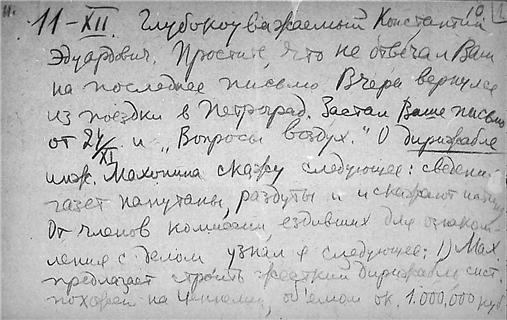 11-XII. Глубокоуважаемый Константин
Эдуардович. Простите, что не отвечал Вам
на последнее письмо. Вчера вернулся
из поездки в Петроград. Застал Ваше письмо
от 24/XI и „Вопросы воздух." О дирижабле
инж. Махонина скажу следующее: сведения
газет напутаны, раздуты и искажают
От членов комиссии, ездивших для ознаком-
ления с делом узнал я следующее: 1) Мах.
предлагает строить жесткий дирижабль сист.
похожей на Цеппелин, объемом ок. 1.000.000 куб.